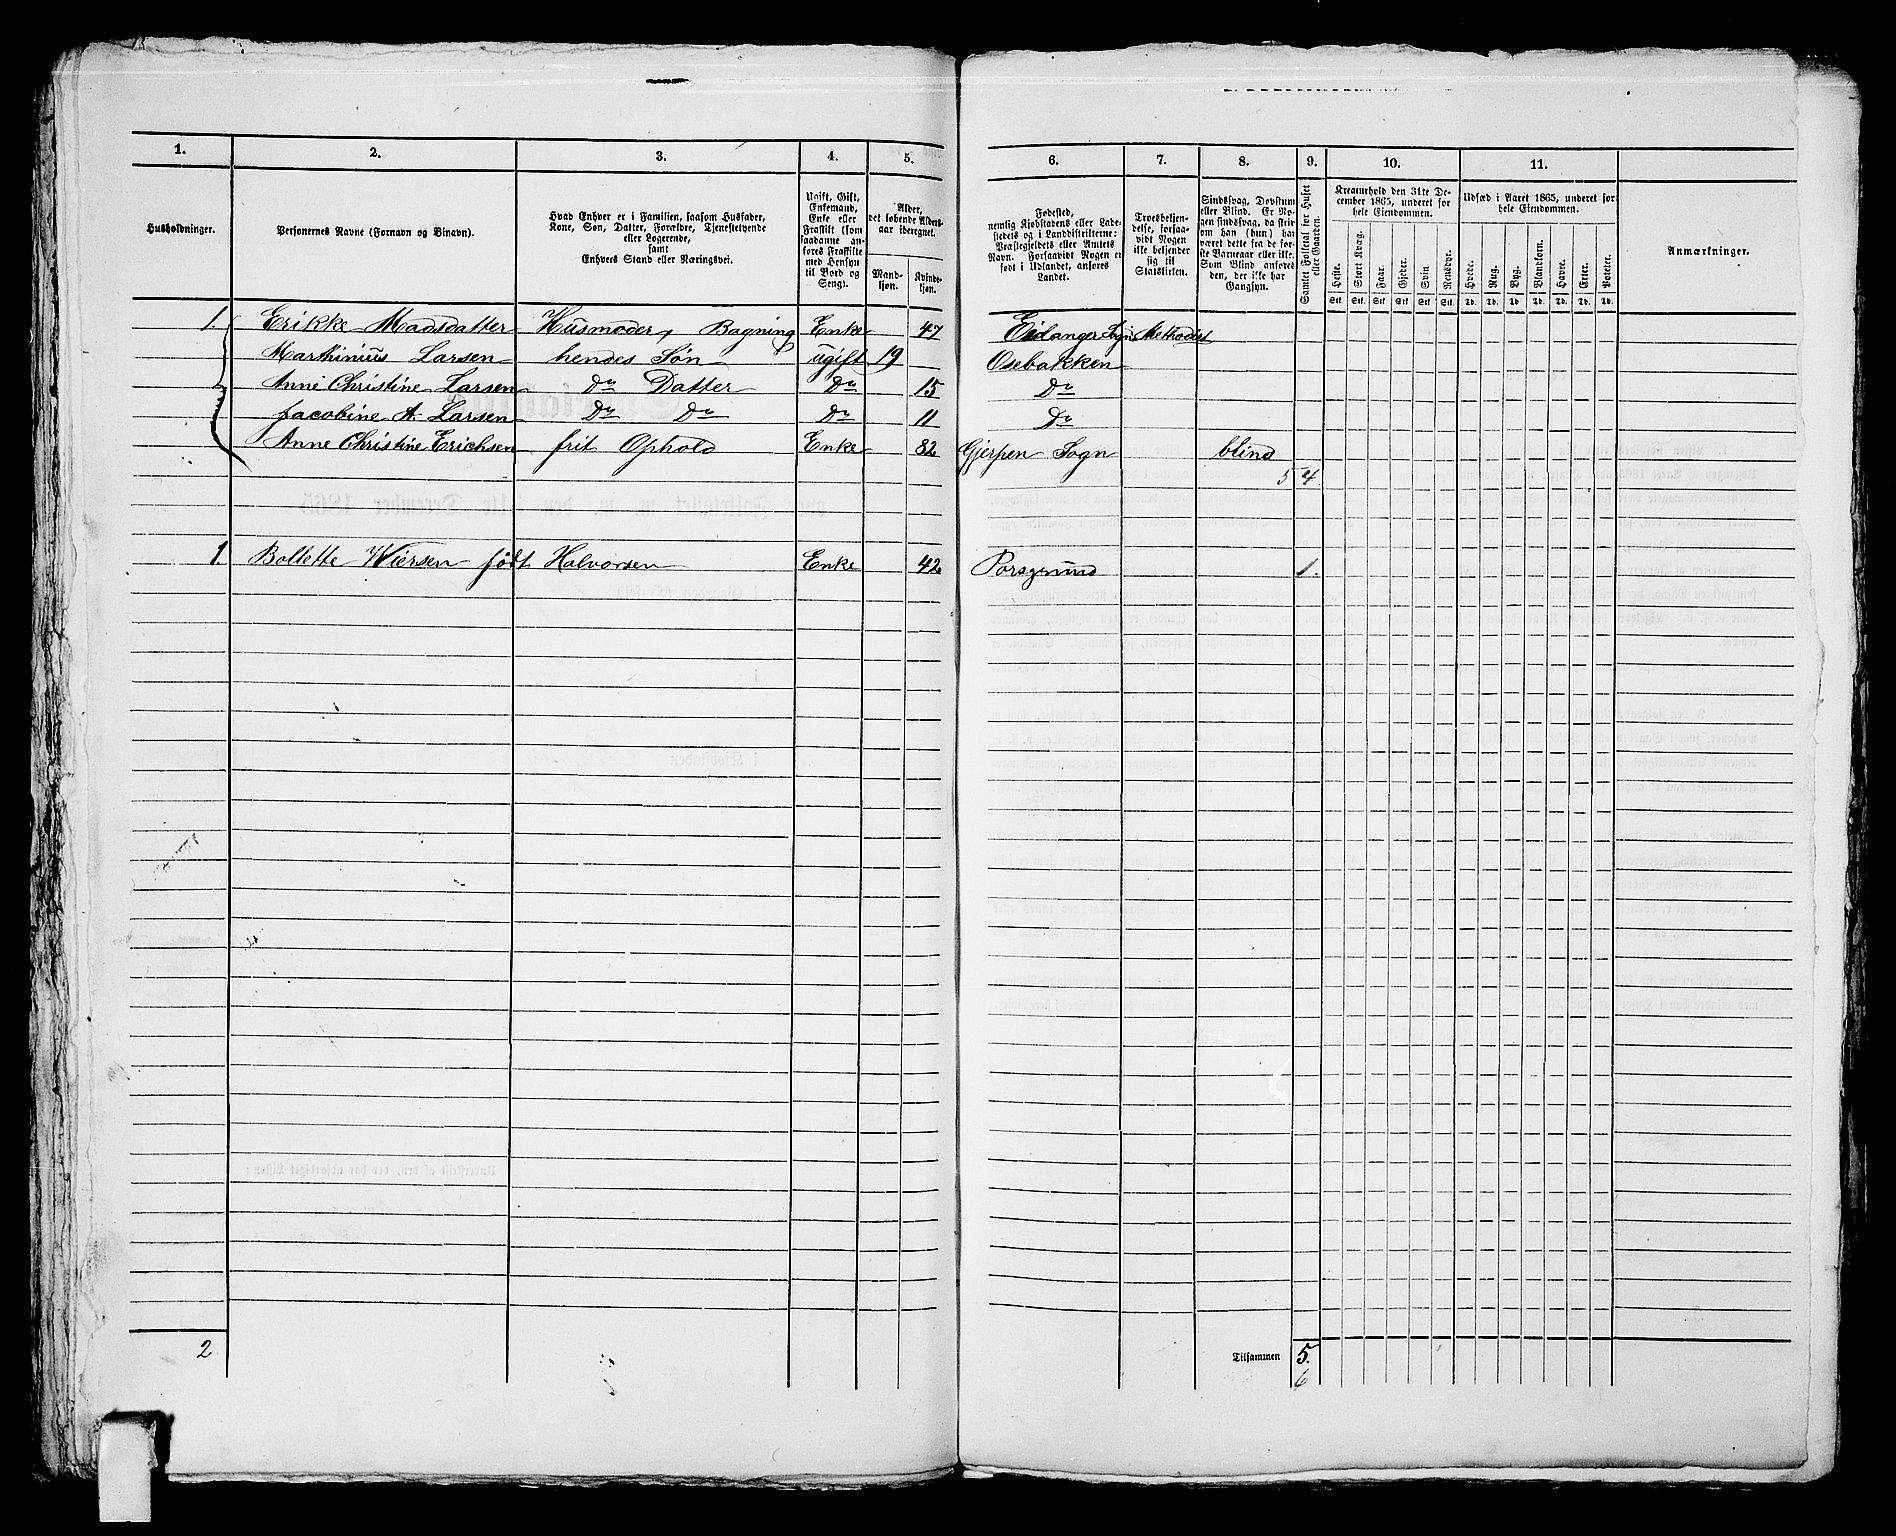 1. 2. 3. 4. 5. 6. 7. 8. 9. 10. 11.
Husholdninger.
Personernes Navne (Fornavn og Binavn).
Hvad Enhver er i Familien, saasom Husfader,
Kone, Søn, Datter, Forældre, Tjenestetyende
eller Logerende,
samt
Enhvers Stand eller Næringsvei.
Ugift, Gift,
Enkemand,
Enke eller
Fraskilt (som
saadanne an-
føres Fraskilte
med Hensyn
til Bord og
Seng).
Alder,
det løbende Alders-
aar iberegnet.
Mand-
kjøn.
Kvinde-
kjøn.
Fødested,
nemlig Kjøbstadens eller Lade-
stedets og i Landdistrikterne:
Præstegjeldets eller Amtets
Navn. Forsaavidt Nogen er
født i Udlandet, anføres
Landet.
Troesbekjen-
delse, forsaa-
vidt Nogen
ikke bekjender
sig til
Statskirken.
Sindssvag, Døvstum
eller Blind. Er No-
gen sindssvag, da skriv
om han (hun) har
været dette fra de før-
ste Barneaar eller ikke.
Som Blind anføres
den, der ikke har
Gangsyn.
Samlet Folketal for Huset
eller Gaarden.
Kreaturhold den 31te De-
cember 1865, underet for
hele Eiendommen.
Heste. Stort Kvæg. Faar. Gjeder. Svin. Rensdyr.
Stk. Stk. Stk. Stk. Stk. Stk.
Udsæd i Aaret 1865, underet for
hele Eiendommen.
Hvede. Rug. Byg. Blandkorn. Havre. Erter. Poteter.
Td. Td. Td. Td. Td. Td. Td.
Anmærkninger.
1. Erikke Madsdatter Husmoder, Bagning Enke 47 Eidanger Sogn Methodist
Marthinius Larsen hendes Søn ugift 19 Osebakken
Anne Christine Larsen Do Datter Do 15 Do
Jacobine A. Larsen Do Do Do 11 Do
Anne Christine Erichsen frit Ophold Enke 82 Gjerpen Sogn blind
5 4
1. Bollette Wiersen født Halvorsen Enke 42 Porsgrund 1.
2 Tilsammen 5.
6